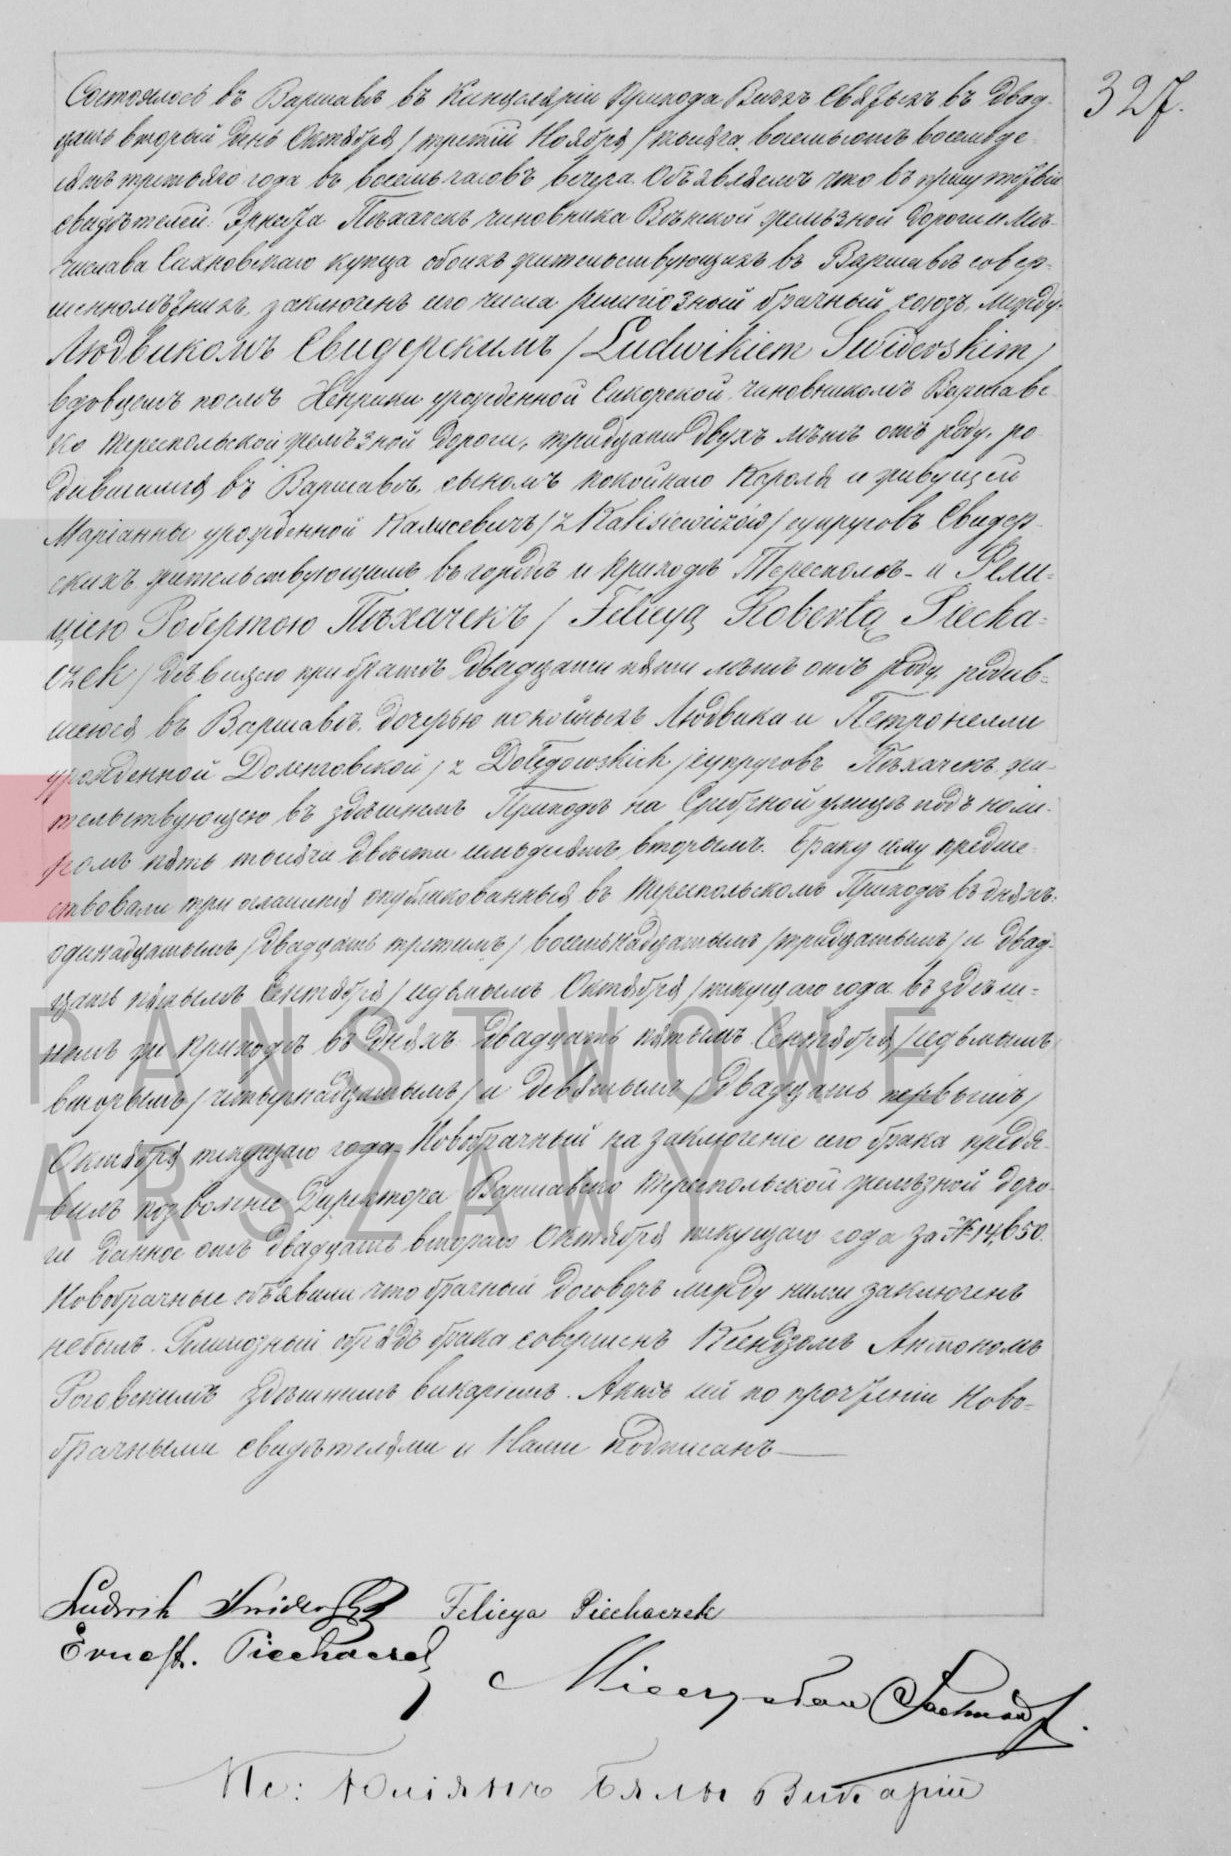 327.
Состоялось въ Варшавѣ въ Канцеляріи Прихода Всѣхъ Святыхъ въ двад-
цать второй день Октября / третій Ноября / тысяча восемьсотъ восемьде-
сятъ третьяго года въ восемь часовъ вечера. Объявляемъ что въ присутствіи
свидѣтелей Эрнеста Пѣхачекъ чиновника Вѣнской желѣзной дороги и Мѣ-
числава Сахновскаго купца обоихъ жительствующихъ въ Варшавѣ совер-
шеннолѣтнихъ, заключенъ сего числа религіозный брачный союзъ, между
Людвикомъ Свидерскимъ / Ludwikiem Swiderskim /
вдовцемъ послѣ Хенрики урожденной Сикорской чиновникомъ Варшавс-
ко Тереспольской желѣзной дороги, тридцати двухъ лѣтъ отъ роду, ро-
дившимся въ Варшавѣ, сыномъ покойнаго Кароля и живущей
Маріанны урожденной Калисевичъ / z Kalisiewiczów / супруговъ Свидер-
скихъ жительствующимъ въ городѣ и приходѣ Тересполь - и Фели-
ціею Робертою Пѣхачекъ / Felicyą Robertą Piecha-
czek / дѣвицею при братѣ двадцати пяти лѣтъ отъ роду, родив-
шеюся въ Варшавѣ, дочерью покойныхъ Людвика и Петронелли
урожденной Доленговской / z Dolęgowskich / супруговъ Пѣхачекъ, жи-
тельствующею въ здѣшнемъ Приходѣ на Сребрной улицѣ подъ номе-
ромъ пять тысячи двѣсти семьдесятъ вторымъ. Браку сему предше-
ствовали три оглашенія опубликованныя въ Тереспольскомъ Приходѣ въ дняхъ:
одинадцатымъ / двадцать третимъ / восемьнадцатымъ / тридцатымъ / и двад-
цать пятымъ Сентября / седьмымъ Октября / текущаго года въ здѣш-
немъ же приходѣ въ дняхъ двадцать пятымъ Сентября / седьмымъ
вторымъ / четырнадцатымъ / и девятымъ / двадцать первымъ /
Октября текущаго года. Новобрачный на заключеніе сего брака предъя-
вилъ позволеніе Директора Варшавско Тереспольской желѣзной доро-
ги данное отъ двадцать втораго Октября текущаго года за № 14,650.
Новобрачные объявили что брачный договоръ между ними заключенъ
небылъ. Религіозный обрядъ брака совершенъ Ксендзомъ Антономъ
Роговскимъ здѣшнимъ викаріемъ. Актъ сей по прочтеніи Ново-
брачными свидѣтелями и Нами подписанъ
Ludwik Swiderski Felicya Piechaczek
Ernest. Piechaczek
Mieczysław
Кс: Юліянъ Бялы Викарій
PAŃSTWOWE
ARSZAWY